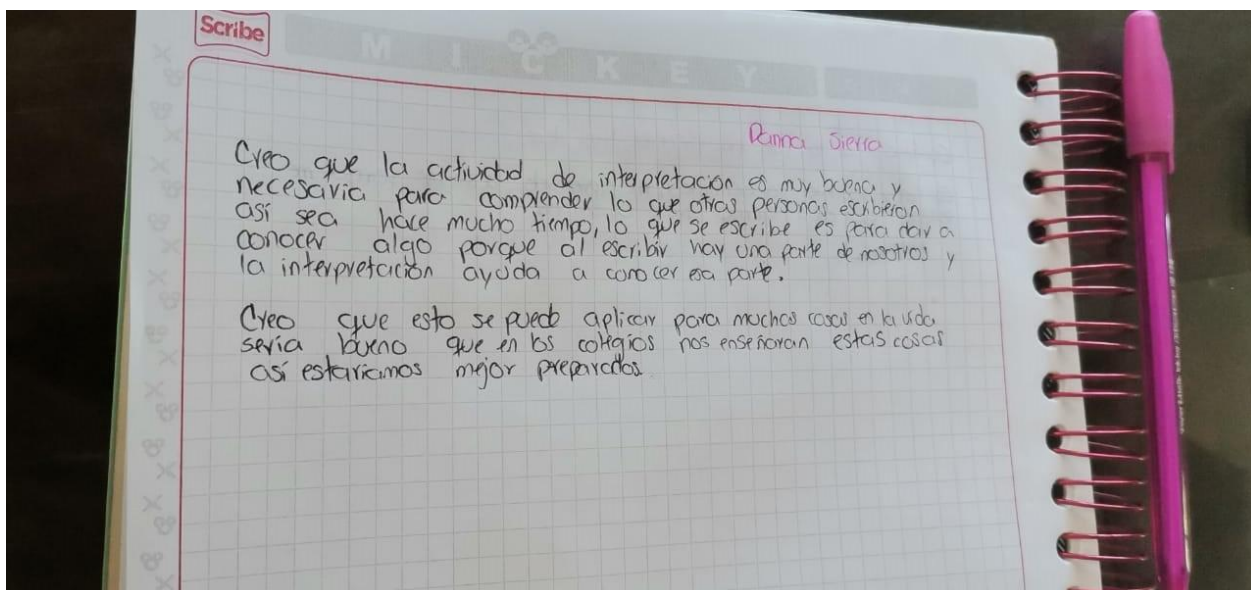 Scribe
MICKEY
Danna Sierra
Creo que la actividad de interpretación es muy buena y
necesaria para comprender lo que otras personas escribieron
así sea hace mucho tiempo, lo que se escribe es para dar a
conocer algo porque al escribir hay una parte de nosotros y
la interpretación ayuda a conocer esa parte.
Creo que esto se puede aplicar para muchas cosas en la vida
seria bueno que en los colegios nos enseñaran estas cosas
así estariamos mejor preparados